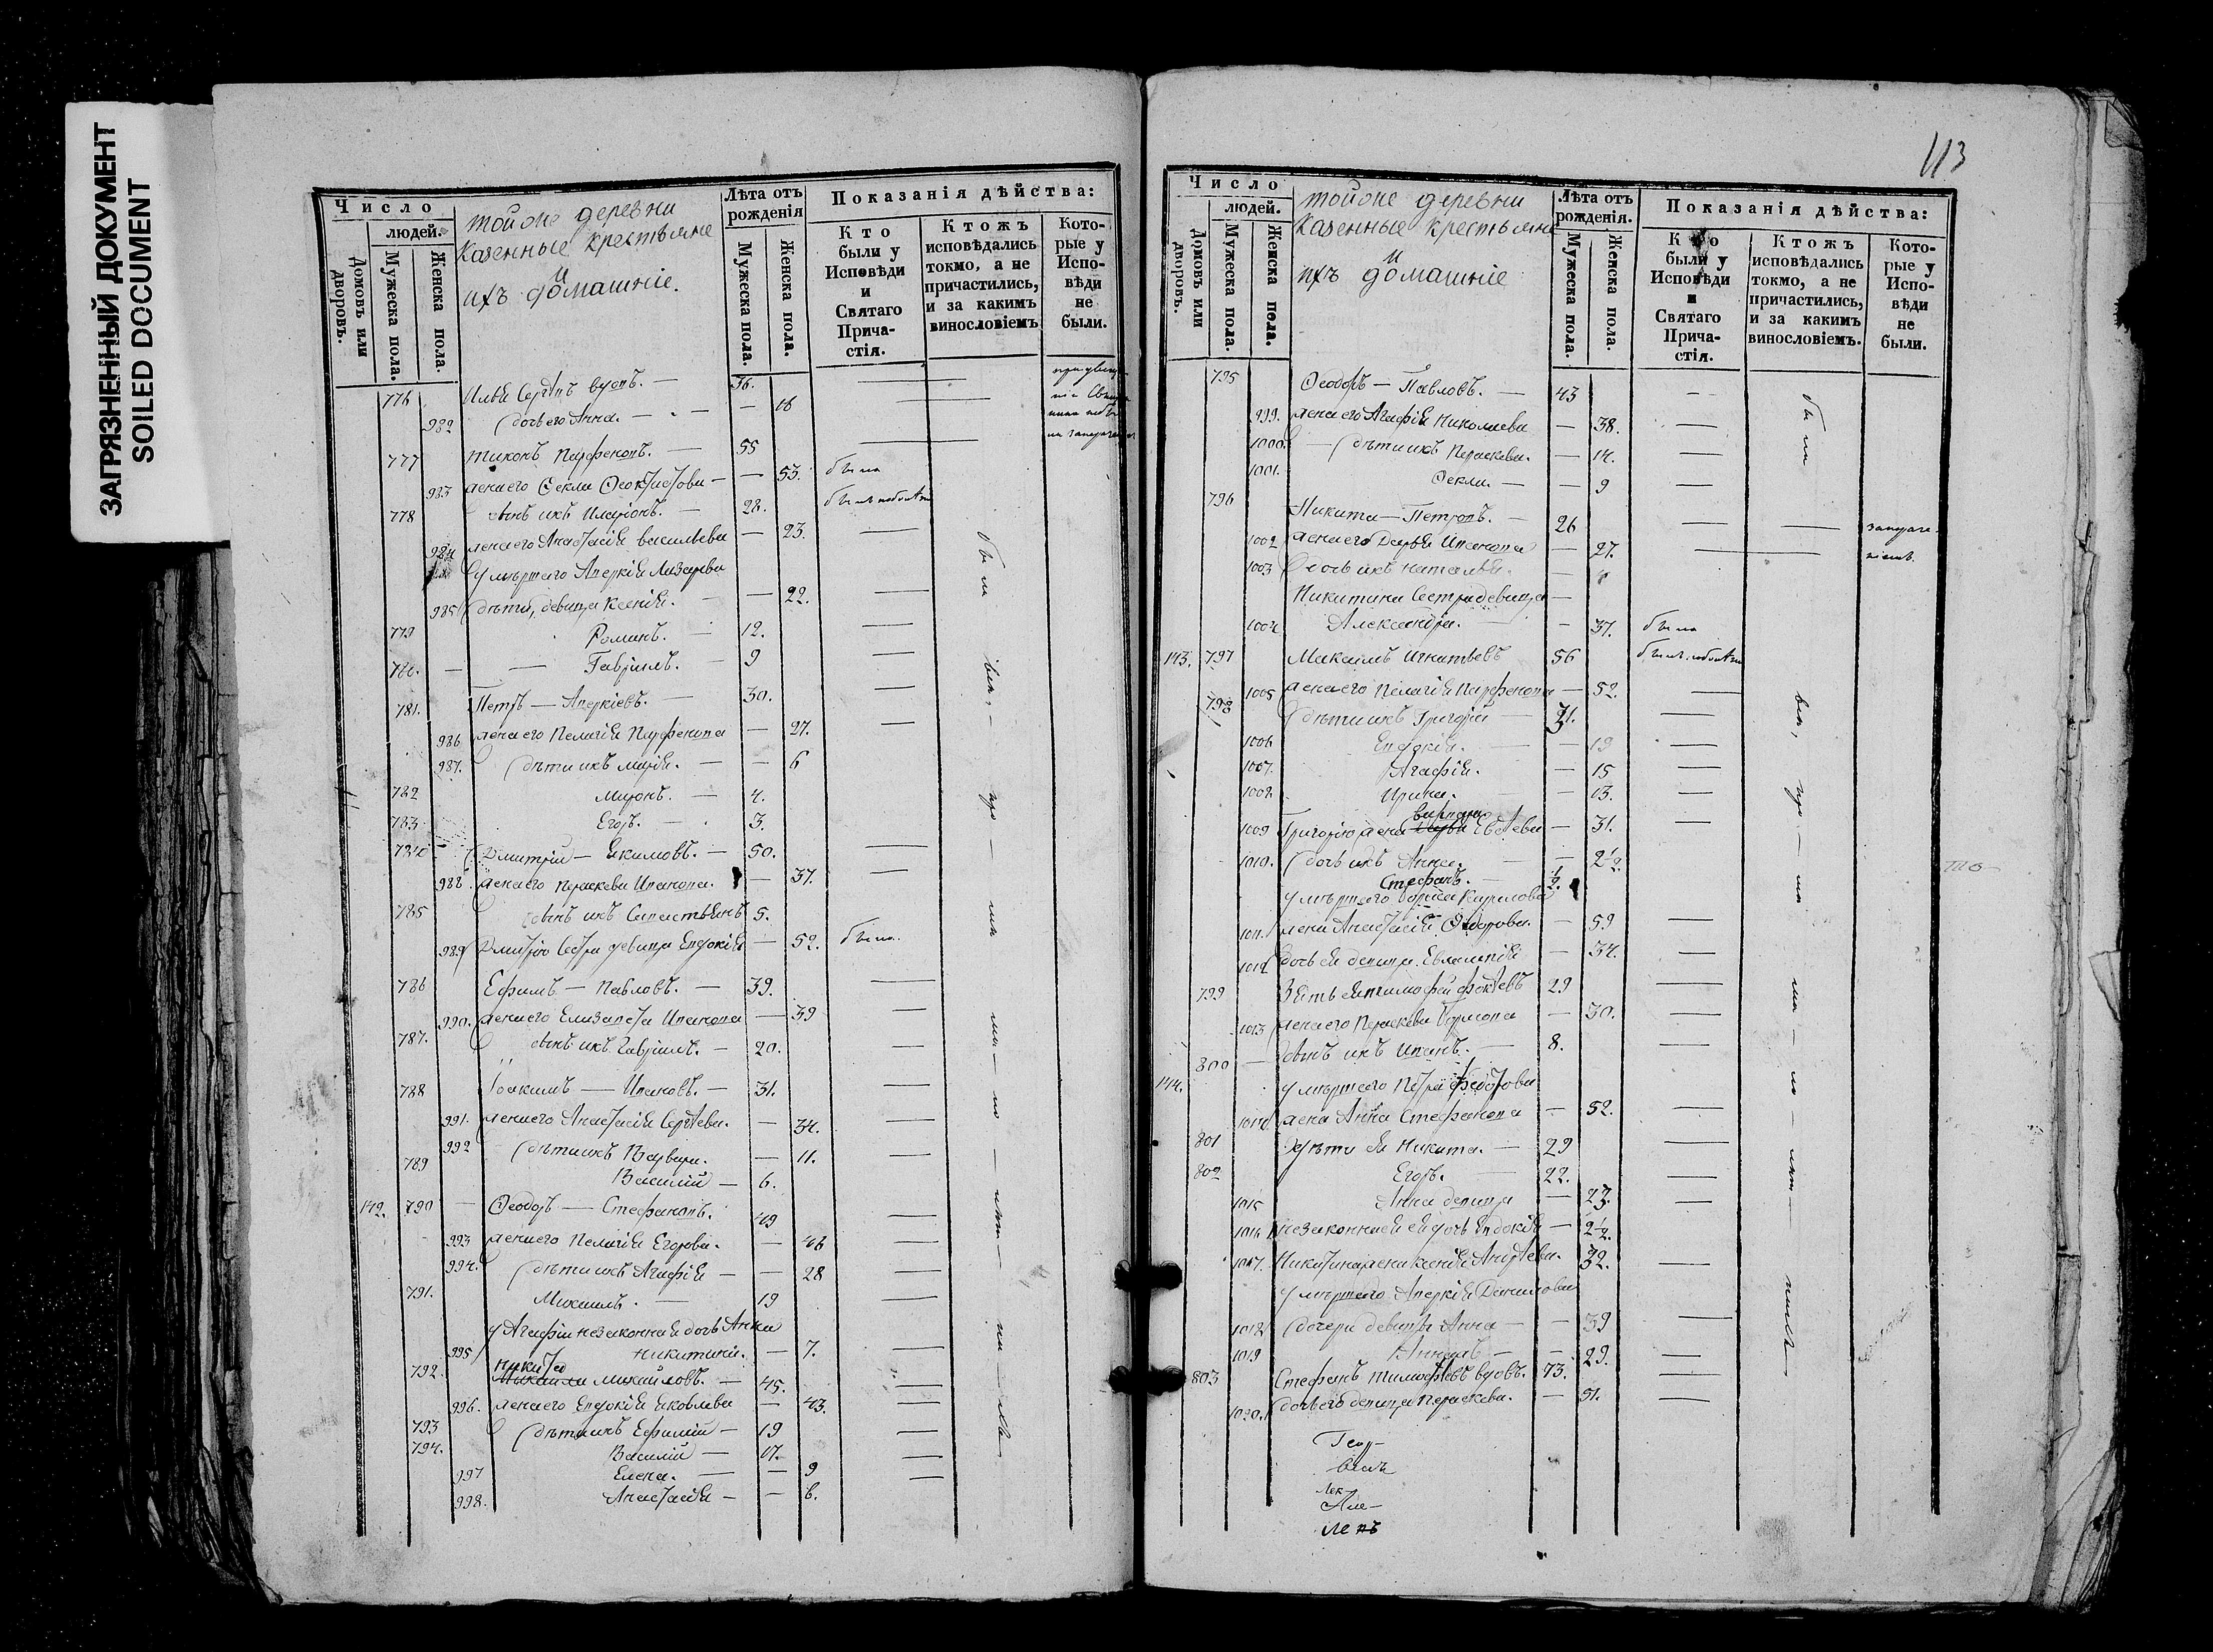 ЗАГРЯЗНЕННЫЙ ДОКУМЕНТ
SOILED DOCUMENT
Число
людей.
Домовъ или дворовъ.
Мужеска пола.
Женска пола.
тойже деревни
казенные крестьяне
и
ихъ домашніе.
Лѣта отъ рожденія
Мужеска пола.
Женска пола.
Показанія дѣйства:
Кто были у Исповѣди и Святаго Прича-стія.
Ктожъ исповѣдались токмо, а не причастились, и за какимъ винословіемъ
Кото-рые у Испо-вѣди не были.
776 Илья вдовъ. — 56.
982 дочь его Анна. — — 18
777 Тихонъ Парфеновъ. — 55
983 жена его Фекла — — 53. была
778 сынъ ихъ Иларіонъ. — 28.
984 жена его Анастасія Васильева — 23.
умершаго Аверкія Лазарева
985 дѣти, девица Ксенія. — — 22.
779 Романъ. — 12.
780. — — Гавріилъ. — 9
781. Петръ — Аверкіевъ. — 30.
986 жена его Пелагія Парфенова — 27.
987. дѣти ихъ Марія. — — 6
782 Миронъ. — 4.
783 Егоръ. — 3.
784 Дмитрій — Якимовъ. — 50.
988. жена его Параскева Иванова. — 37.
785 сынъ ихъ 5.
989 Дмитрію сестра девица Евдокія — 52. была.
786 Ефимъ — Павловъ. — 39.
990. жена его Елизавета Иванова — 39
787. сынъ ихъ Гавріилъ. — 20.
788 Іоакимъ — Ивановъ. — 31.
991. жена его Анастасія Сергѣева. — 34.
992 дѣти ихъ Варвара. — 11.
789 Василій — 6.
142. 790 — Ѳеодоръ — Стефановъ. 49
993 жена его Пелагія Егорова. — 46
994. дѣти ихъ Агафія — — 28
791. Михаилъ. — 19
у Агафіи незаконная дочь Анна
995 Никитина. — 7.
792. Никита Михайловъ. — 45.
996. жена его Евдокія Яковлева — 43.
793 дѣти ихъ Ефимій — 19
794. Василій — 17.
997 Елена. — — 9
998. Анастасія — — 6.
113
Число
людей.
Домовъ или дворовъ.
Мужеска пола.
Женска пола.
тойже деревни
казенные крестьяне
и
ихъ домашніе
Лѣта отъ рожденія.
Мужеска пола.
Женска пола.
Показанія дѣйства:
Кто были у Исповѣди и Святаго Прича-стія.
Ктожъ исповѣдались токмо, а не причастились, и за какимъ винословіемъ.
Кото-рые у Испо-вѣди не были.
795 Ѳеодоръ — Павловъ. — 43
999. жена его Агафія Николаева — 38.
1000. — дѣти ихъ Параскева. — 14.
1001. Фекла. — — 9
796 Никита — Петровъ. — 26
1002 жена его Дарья Иванова — 27.
1003 дочь ихъ Наталья. —
Никитина сестра девица —
1004 Александра. — 37. была
143. 797 Максимъ Игнатьевъ 56
1005 жена его Пелагія Парфенова — 52.
798 дѣти ихъ Григорій — 31.
1006 Евдокія. — — 19
1007. Агафія. — 15
1008 Ирина. — — 13.
1009 Григорію жена — 31.
1010. дочь ихъ Анна. — — 2½
Стефанъ. — ½.
умершаго Бориса Кирилова
1011. жена Анастасія Ѳедорова. — 59
1012 дочь ея девица Евлампія — 34.
799 Зять ея Тимофей 29
1013 жена его Параскева Борисова — 30.
800 — сынъ ихъ Иванъ. — 8.
144. умершаго Петра Федотова
1014 жена Анна Стефанова — 52.
801 Дѣти ея Никита. — 29
802 Егоръ. — 22.
1015 Анна девица — 23.
1016 незаконная ея дочь Евдокія — 2½.
1017. Никитина жена Ксенія Андрѣева. 32.
умершаго Аверкія Данилова
1018 дочери девицы Анна — — 39
1019 — 29.
803 Стефанъ Тимофѣевъ вдовъ. 73.
1020. дочь его девица Параскева. — 51.